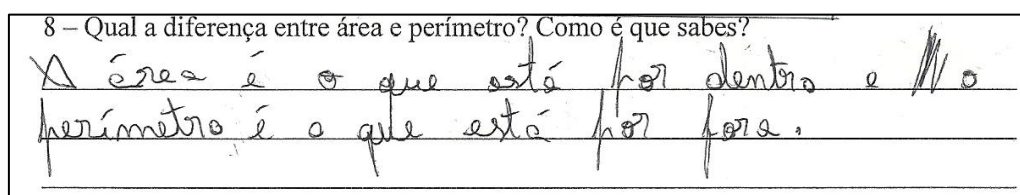 8 – Qual a diferença entre área e perímetro? Como é que sabes?
A área é o que está por dentro e o
perímetro é o que está por fora.